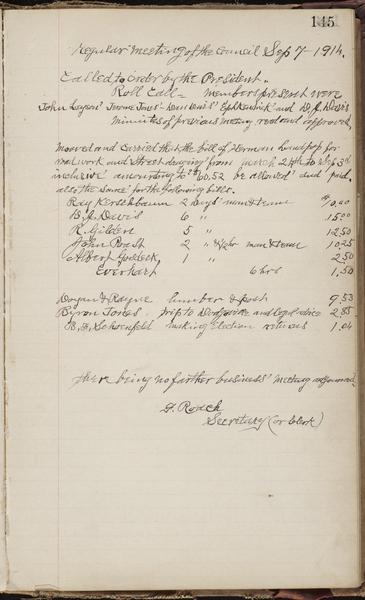 145
Regular meeting of the Council Sep 7 - 1914.
Called to order by the President.
Roll Call - members present were
John Jerome Jones and D. J. Davis
minutes of previous meeting read and approved.
Moved and carried that the bill of Herman for
rail work and street draging from march 24th to Sep 3rd
inclusive amounting to $60.52 be allowed and paid.
also the same for the following bills.
Ray Kerschbaum 2 days man & team $
B. J. Davis 6 " 15.00
R. Gilden 5 " 12.50
John Roast 2 " & 2 hr man & team 10.25
Albert 1 " 2.50
Everhart 6 hrs 1.50
& Rayne lumber & post 9.53
Byron Jones. trip to Dodgeville and legal advice 2.85
B. F. Schoenfeld making election returns 1.04
there being no farther business meeting adjourned.
F. Roach
Secretary (or Clerk)